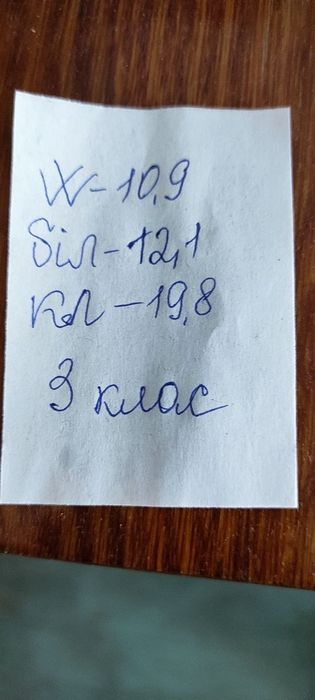 W-10,9
біл-12,1
кл-19,8
3 клас